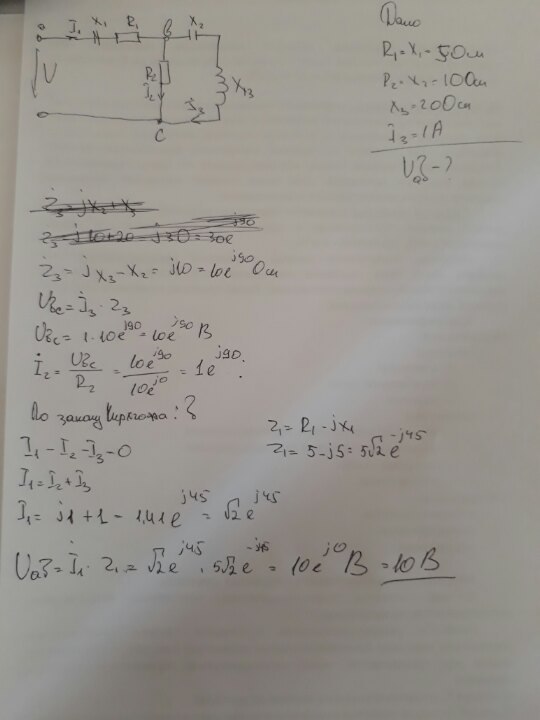 a
I₁
X₁
R₁
B
X₂
U
R₂
I₂
X₃
I₃
C
Дано
R₁=X₁=5Ом
R₂=X₂=10Ом
X₃=20Ом
I₃=1A
Uаб-?
Z₃=jX₂+X₃
Z₃ j10+20=j30=30e^j90
Z₃=jX₃-X₂=j10=10e^j90 Ом
Uвс=İ₃·Z₃
Uвс=1·10e^j90=10e^j90 В
İ₂=Uвс/R₂=10e^j90/10e^j0=1e^j90
По закону Кирхгофа:
I₁-I₂-I₃=0
I₁=I₂+I₃
I₁=j1+1=1,41e^j45=√2e^j45
Z₁=R₁-jX₁
Z₁=5-j5=5√2e^-j45
Uаб=İ₁·Z₁=√2e^j45·5√2e^-j45=10e^j0 В=10В